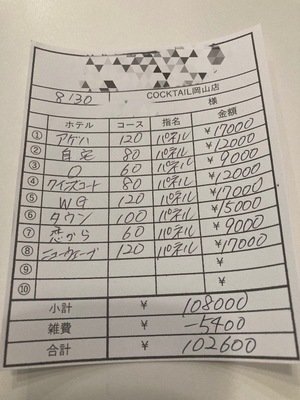 COCKTAIL岡山店
8/30 様
ホテル コース 指名 金額
① アゲハ 120 パネル ¥17000
② 自宅 80 パネル ¥12000
③ O 60 パネル ¥9000
④ ワイズコート 80 パネル ¥12000
⑤ WG 120 パネル ¥17000
⑥ タウン 100 パネル ¥15000
⑦ 恋から 60 パネル ¥9000
⑧ ニューウェーブ 120 パネル ¥17000
⑨ ¥
⑩ ¥
小計 ¥ 108000
雑費 ¥ -5400
合計 ¥ 102600